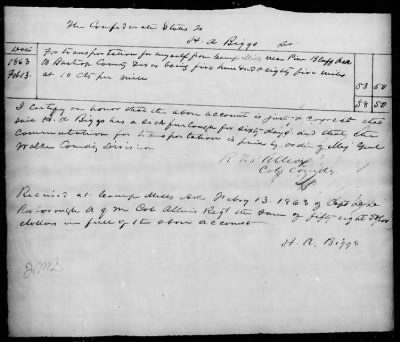 The Confederate States To
H. A Biggs Dr.
Date
1863 For transportation for myself from Camp Mills near Pine Bluff Ark
Feb 13. to Bastrop County Texas being five hundred & eighty five miles
at 10 cts per mile 58 50
58 50
I certify on honor that the above account is just & correct that
H. A Biggs has a sick furlough for sixty days and that the
Commutation for transportation is paid by order of Maj Genl
Walker Comdg Division
Col Comdg
Received at Camp Mills Ark Feby 13. 1863 of Capt
Roxborough A Q M Col Allens Regt the sum of fifty eight
dollars in full of the above account
H. A. Biggs